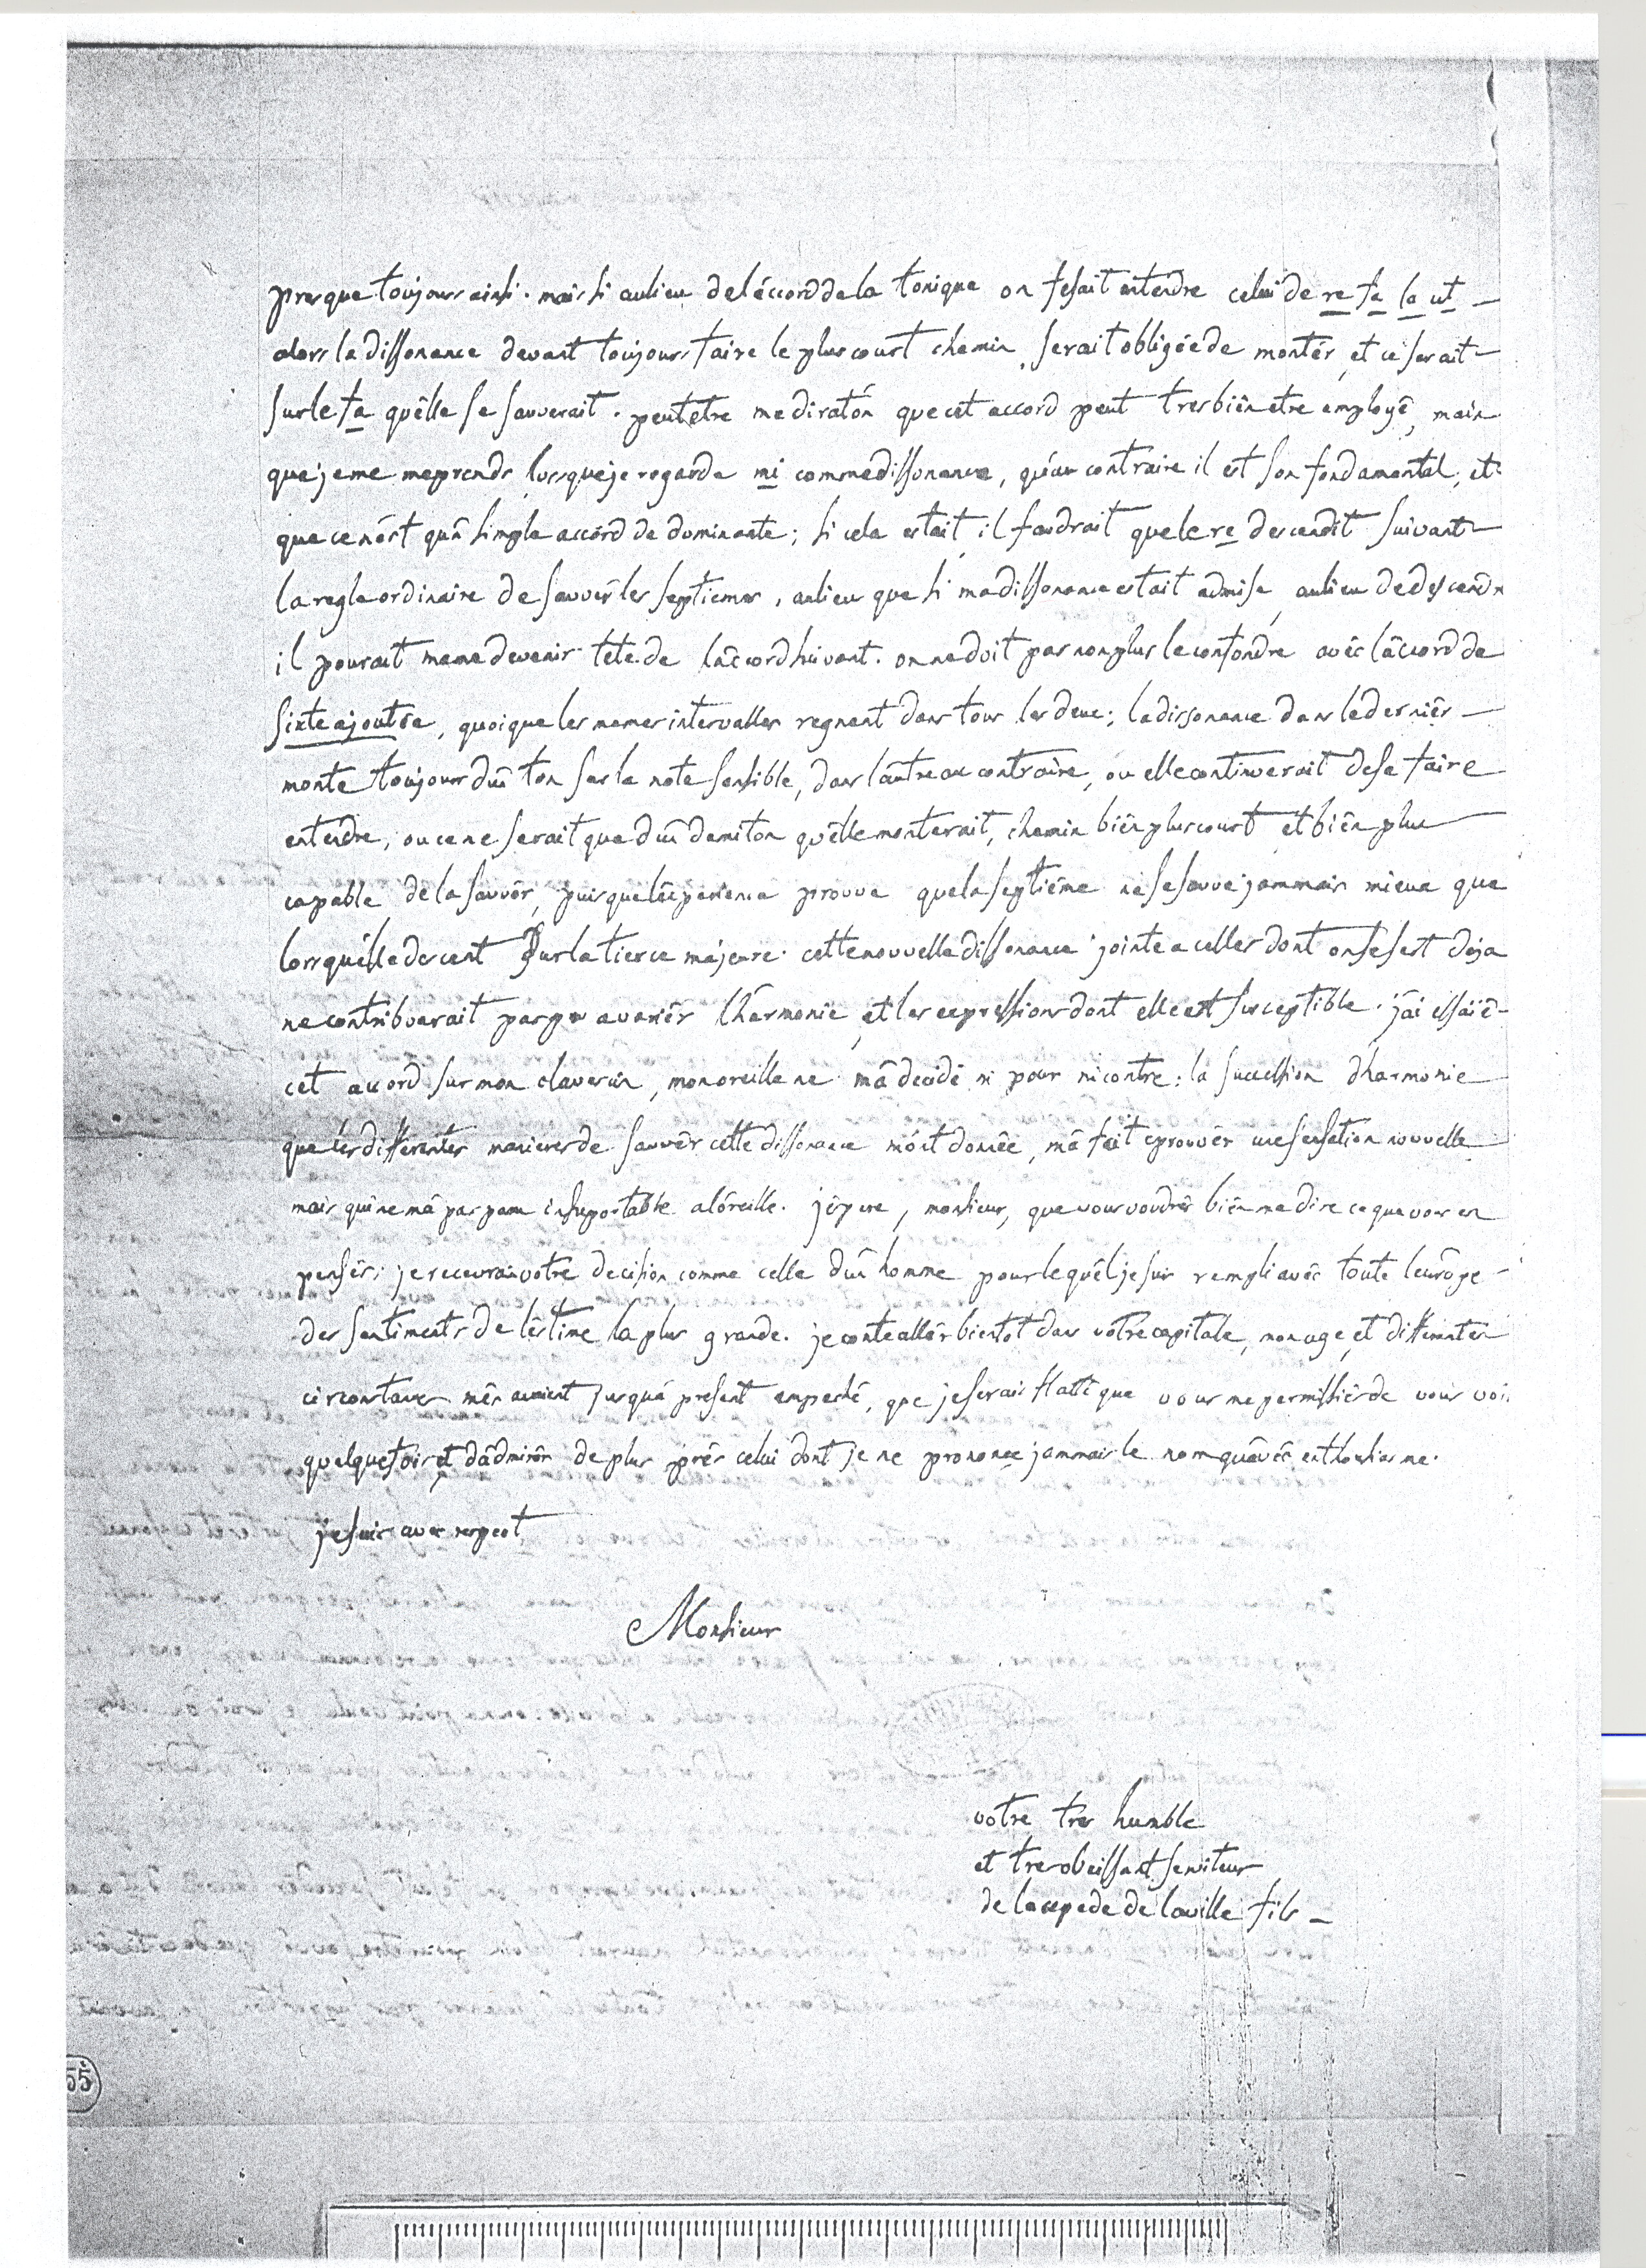 presque toujours ainsi. mais si aulieu de l'accord de la tonique on fesait entendre celui de re fa la ut
alors la dissonance devant toujours faire le plus court chemin, serait obligée de monter, et ce serait
sur le fa quêlle se sauverait. peutetre me diratón que cet accord peut tres biên etre employé, mais
que je me meprends lorsque je regarde mi comme dissonance, qu'au contraire il est son fondamental, et
que ce nést quún simple accord de dominante; si cela estait, il faudrait que le re descendit suivant
la regle ordinaire de sauver les septiemes, aulieu que si ma dissonance estait admise, aulieu de descendre
il pourait meme devenir tete de lâccord suivant. on ne doit pas non plus le confondre avêc lâccord de
sixte ajoutée, quoique les memes intervalles regnent dans tous les deux; la dissonance dans le derniêr
monte toujours dún ton sur la note sensible, dans lautre au contraire, ou elle continuerait de se faire
entendre, ou ce ne serait que dún demiton quêlle monterait, chemin biên plus court et biên plus
capable de la sauvêr, puisque léxperience prouve que la septiéme ne se sauve jammais mieux que
lorsquélle descent sur la tierce majeure. cette nouvelle dissonance jointe a celles dont on se sert deja
ne contribuerait pas peu a variêr lhármonie, et les expressions dont elle est susceptible. jái essaïé
cet accord sur mon clavecin, mon oreille ne mâ decidé ni pour ni contre; la succession dharmonie
que les differentes manieres de sauvêr cette dissonance mónt donnée, mâ fait eprouvêr une sensation nouvelle
mais qui ne mâ pas paru insuportable a lóreille. jéspere, monsieur, que vous voudrês biên me dire ce que vous en
pensês; je recevrai votre decision comme celle dún homme pour le quêl je suis rempli avêc toute leurope
des sentiments de léstime la plus grande. je conte allêr bientot dans votre capitale, mon age, et differentes
circonstances mên avaient jusquá present empeché, que je serais flatté que vous me permissiês de vous voir
quelquefois, et dâdmirêr de plus près celui dont je ne prononce jammais le nom quâvêc enthousiasme.
je suis avec respect
Monsieur
votre tres humble
et tres obeissant serviteur
de lacepede de laville fils
55